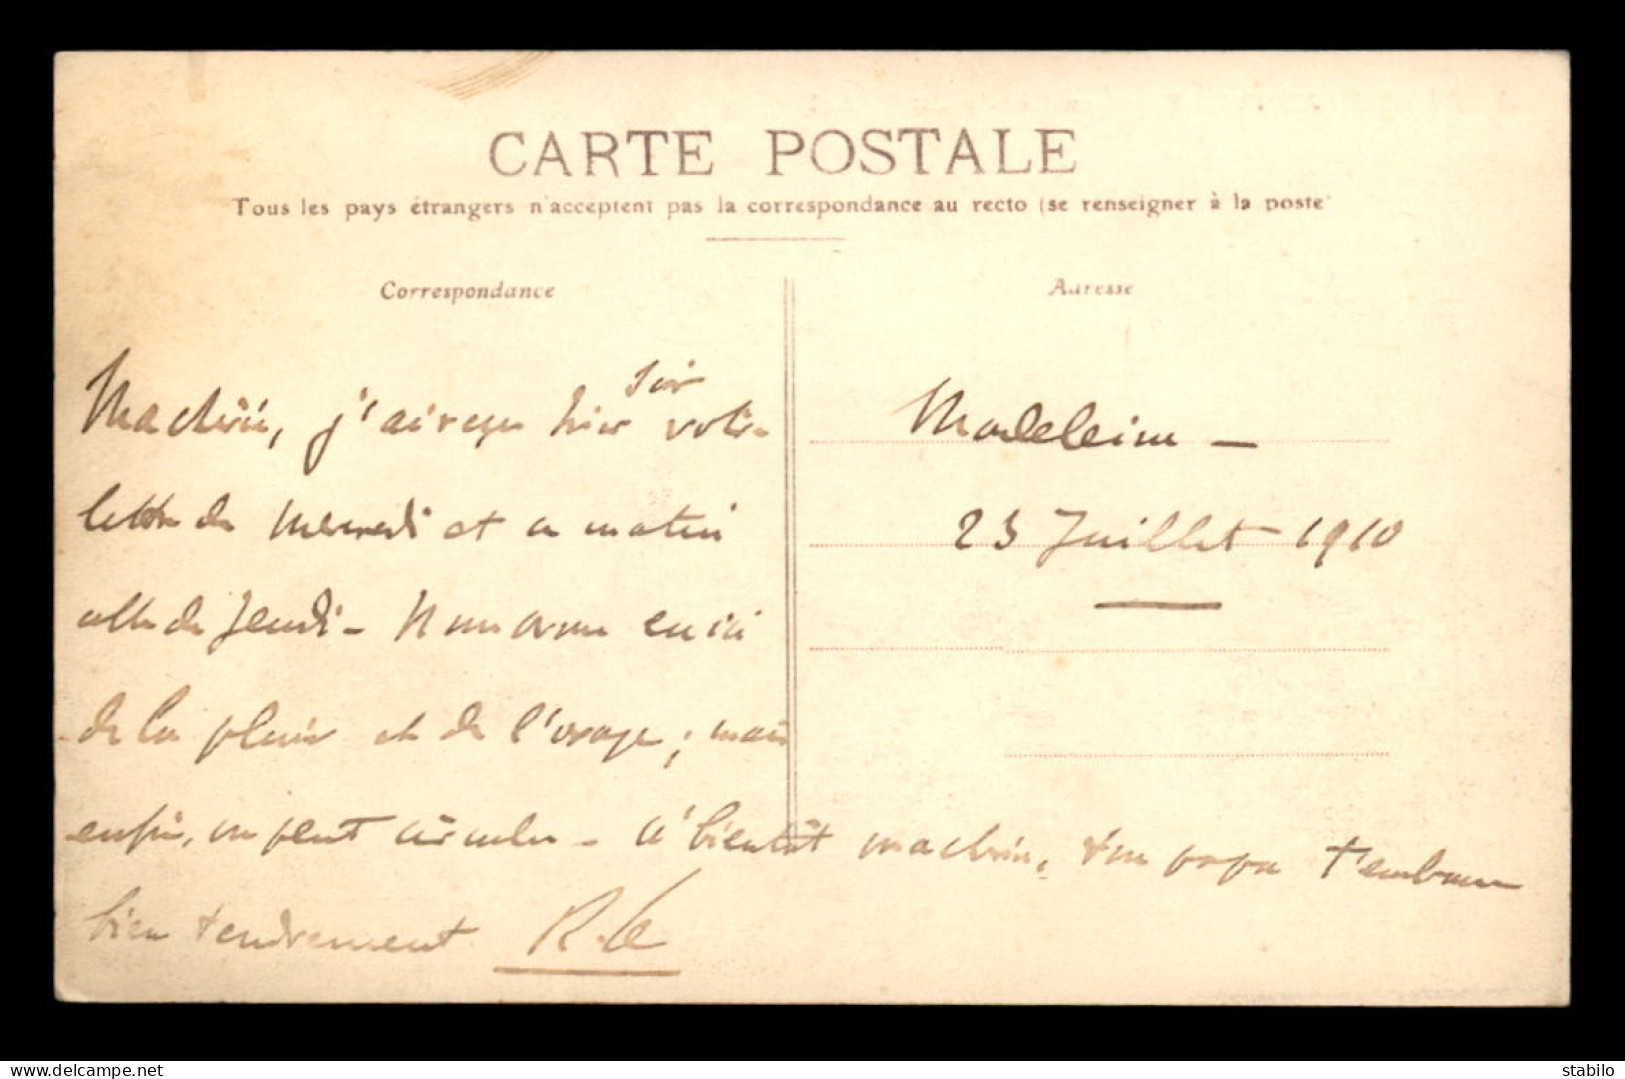 CARTE POSTALE
Tous les pays étrangers n'acceptent pas la correspondance au recto (se renseigner à la poste)
Correspondance
Adresse
Ma chérie, j'ai reçu hier soir votre
lettre de mercredi et ce matin
celle de Jeudi - Nous avons eu ici
de la pluie et de l'orage ; mais
enfin, on peut circuler - à bientôt ma chérie, ton papa t'embrasse
bien tendrement
Madeleine -
23 Juillet 1910
Delcampe.net
stabilo